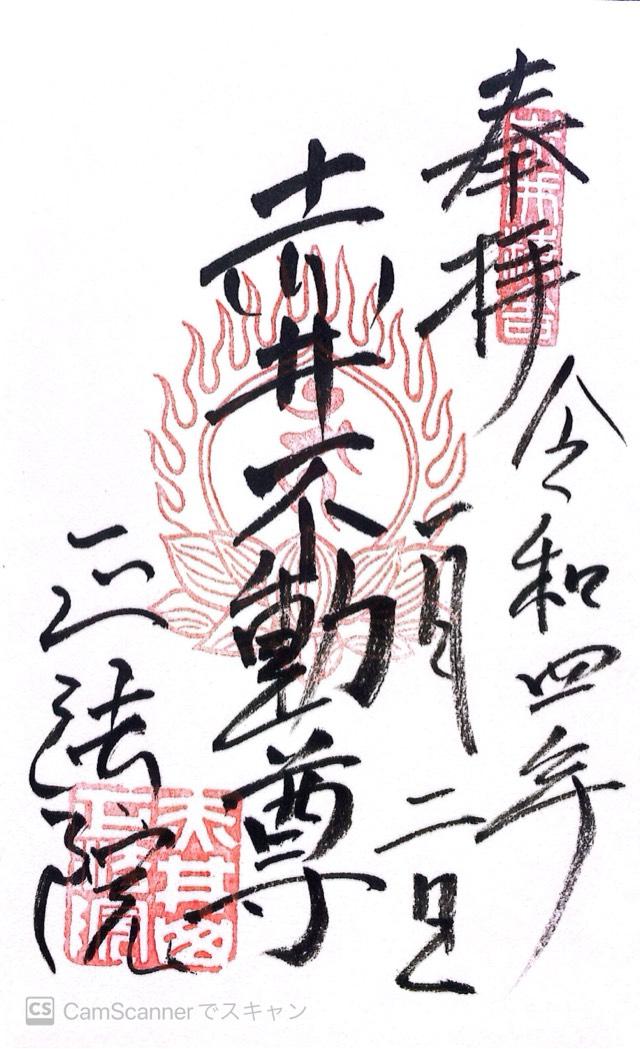 奉拝
令和四年
一月二日
赤井不動尊
正法院
天井山
CS CamScannerでスキャン